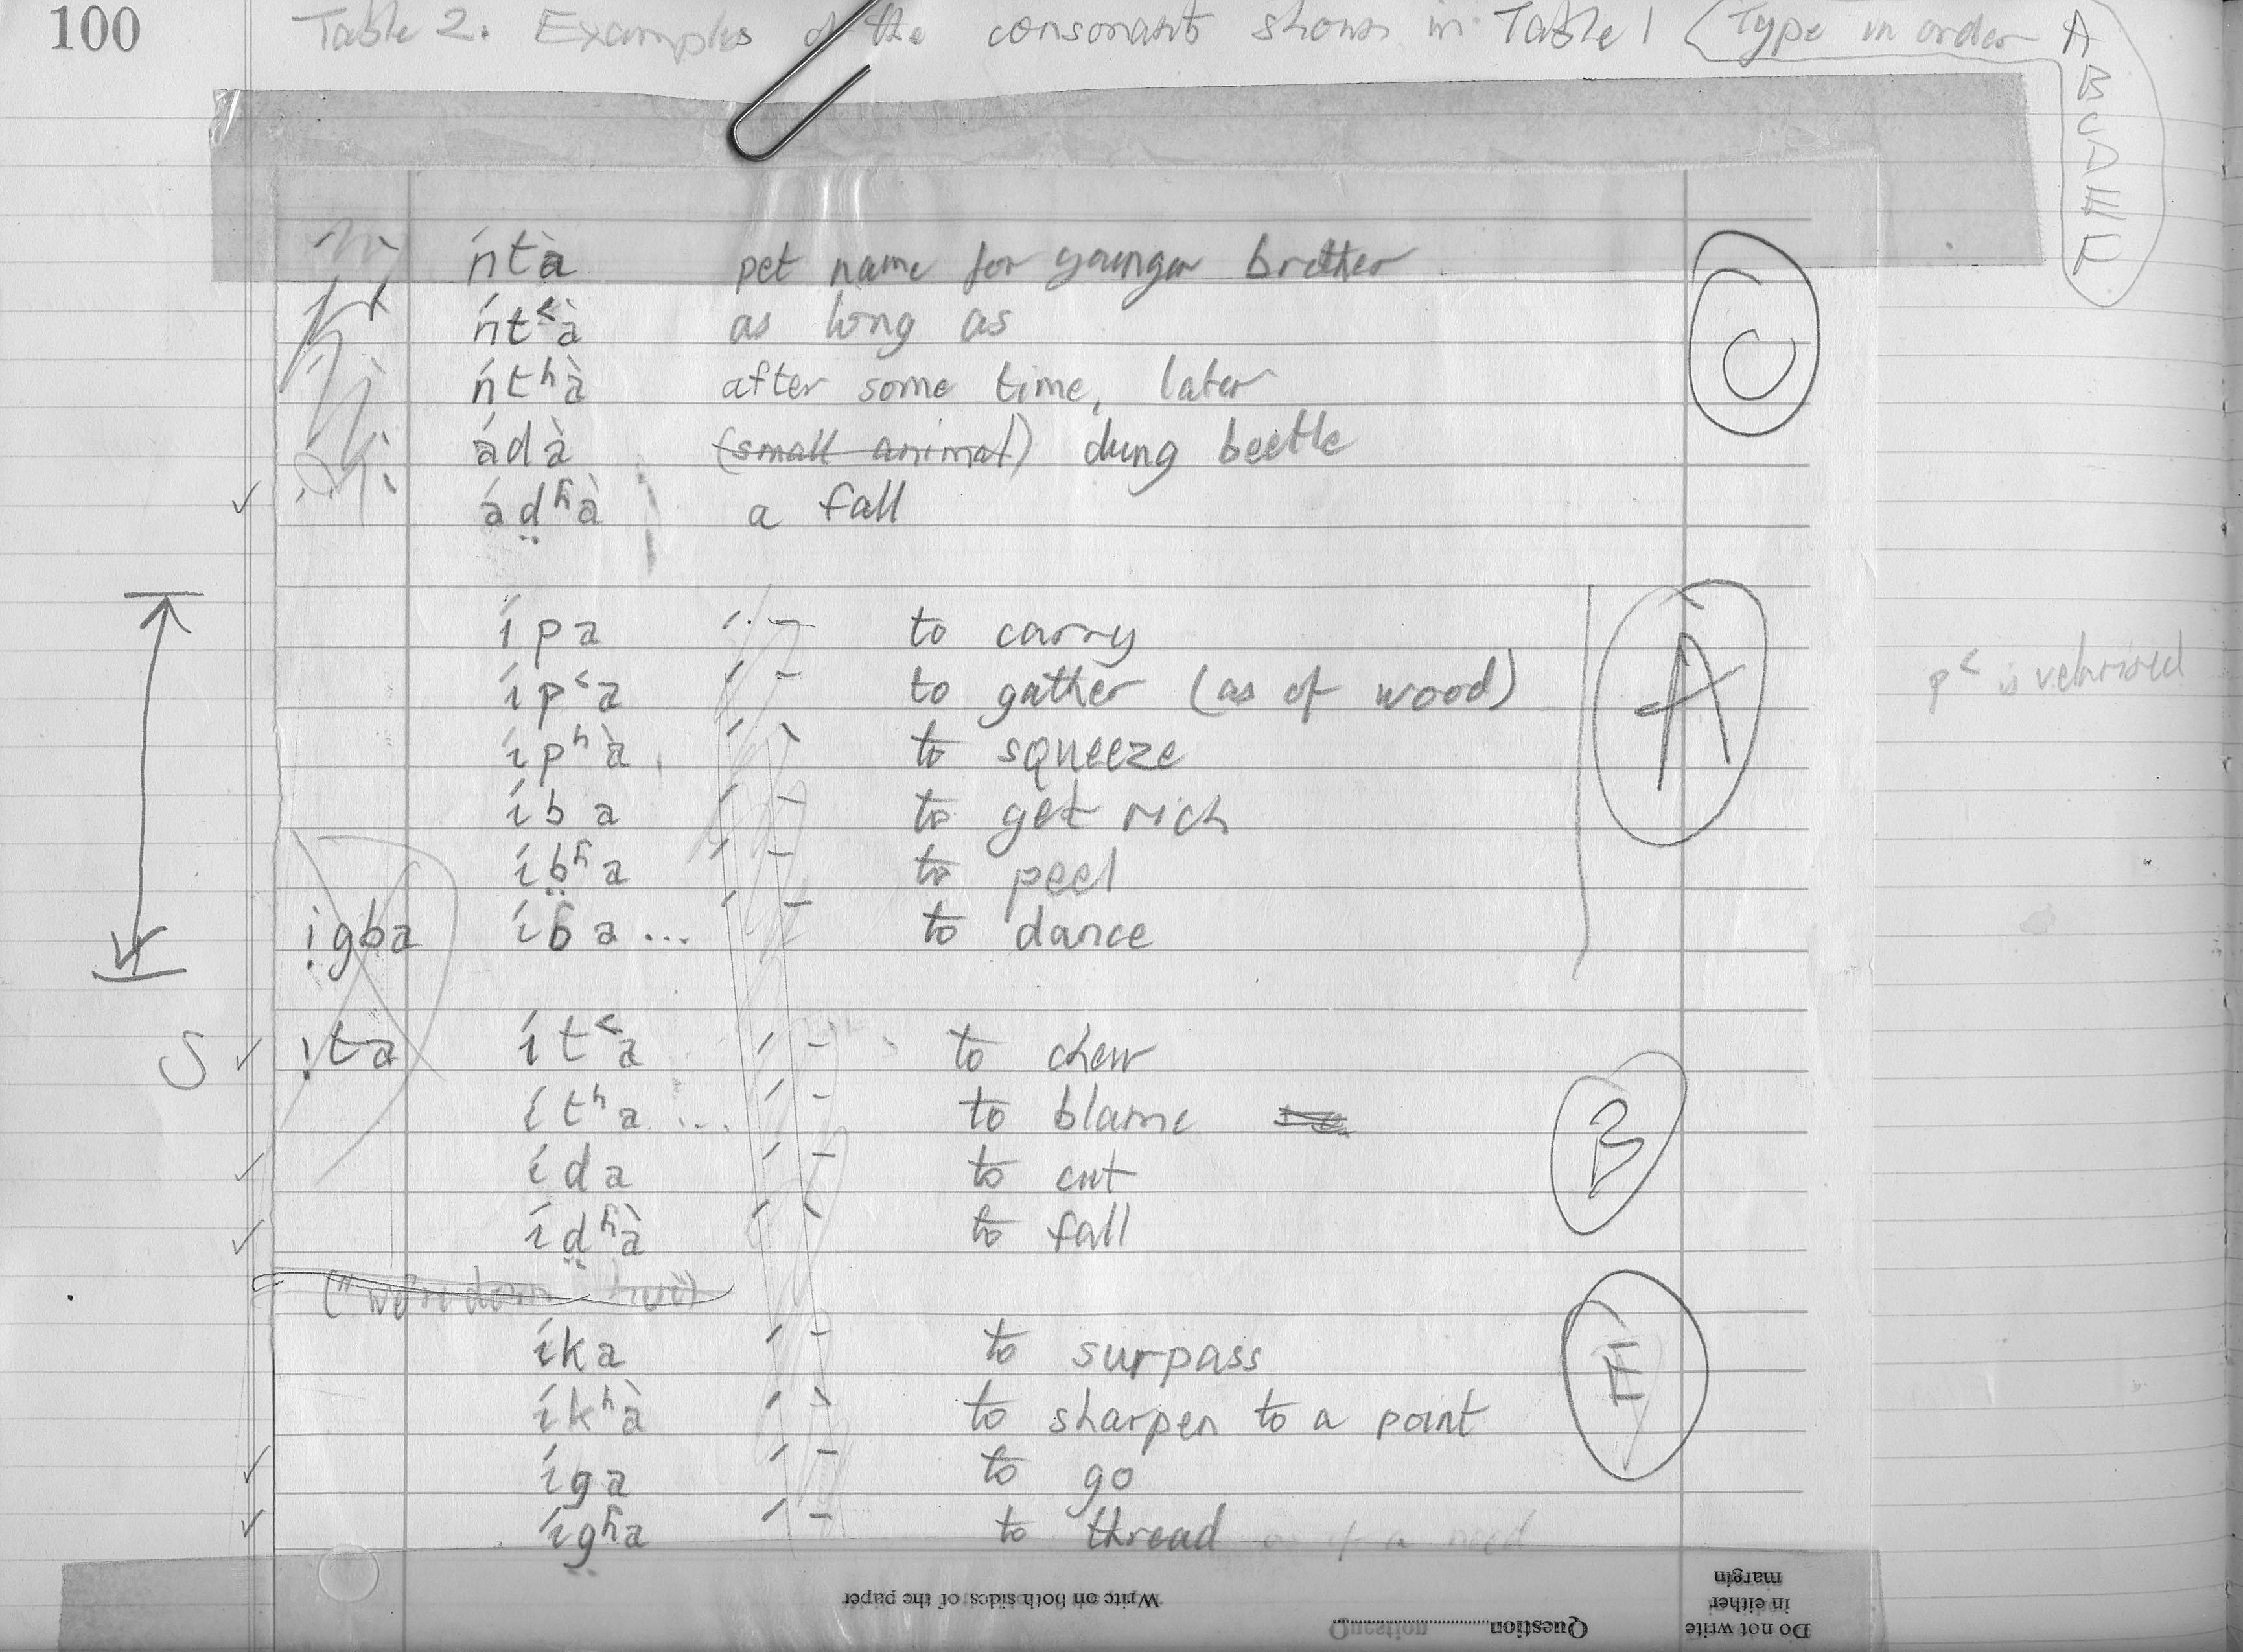 100 Table 2. Examples of the consonants shown in Table 1 (Type in order A
B
C
D
E
F
ńtà pet name for younger brother
ńt˂à as long as
ńtʰà after some time, later
ádà (small animal) dung beetle
ád̤ʱà a fall
C
ípa ˊ ˉ to carry
íp˂a ˊ ˉ to gather (as of wood)
ípʰà ˊ ˋ to squeeze
íba ˊ ˉ to get rich
íb̤ʱa ˊ ˉ to peel
ịgba íɓa ... ˊ ˉ to dance
A
p˂ is velarised
ịta ít˂a ˊ ˉ to chew
ítʰa ... ˊ ˉ to blame
ída ˊ ˉ to cut
íd̤ʱà ˊ ˋ to fall
B
íka ˊ ˉ to surpass
íkʰà ˊ ˋ to sharpen to a point
íga ˊ ˉ to go
íg̤ʱa ˊ ˉ to thread as of a
E
Write on both sides of the paper
Question
Do not write
in either
margin